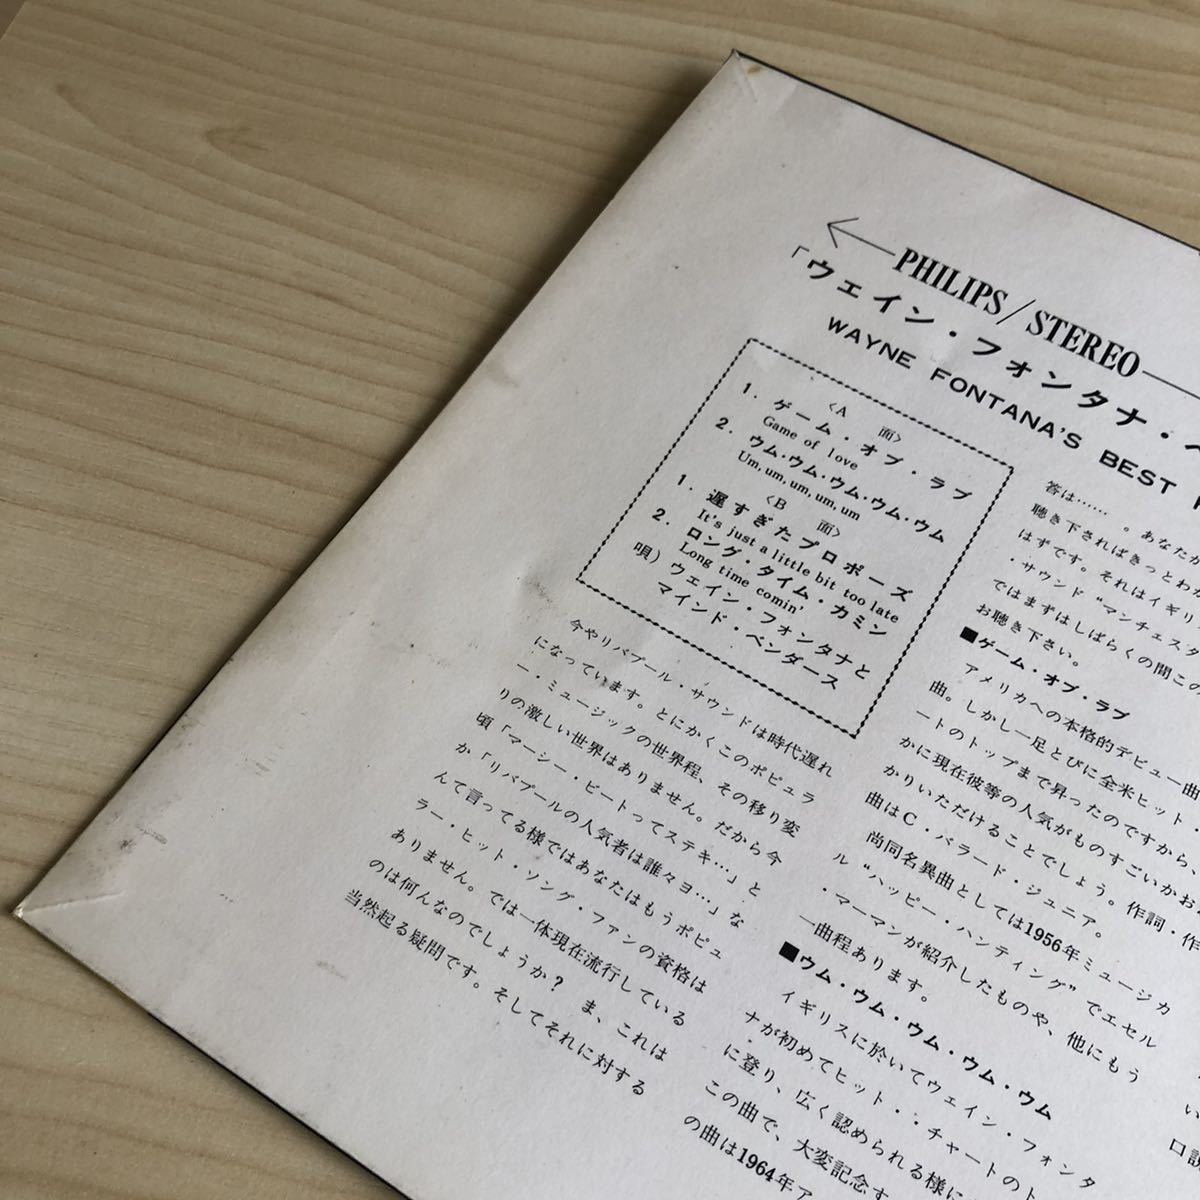 PHILIPS/STEREO
「ウェイン・フォンタナ・ベ
WAYNE FONTANA'S BEST
〈A 面〉
1. ゲーム・オブ・ラブ
Game of love
2. ウム・ウム・ウム・ウム・ウム
Um, um, um, um, um
〈B 面〉
1. 遅すぎたプロポーズ
It's just a little bit too late
2. ロング・タイム・カミン
Long time comin'
唄) ウェイン・フォンタナと
マインド・ベンダース
今やリバプール・サウンドは時代遅れ
になっています。とにかくこのポピュラ
ー・ミュージックの世界程、その移り変
りの激しい世界はありません。だから今
頃「マーシー・ビートってステキ…」と
か「リバプールの人気者は誰々ヨ…」な
んて言ってる様ではあなたはもうポピュ
ラー・ヒット・ソング・ファンの資格は
ありません。では一体現在流行している
のは何んなのでしょうか? ま、これは
当然起る疑問です。そしてそれに対する
答は……。あなたが
聴き下されればきっとわか
はずです。それはイギリ
・サウンド“マンチェスタ
ではまずはしばらくの間この
お聴き下さい。
■ゲーム・オブ・ラブ
アメリカへの本格的デビュー曲
曲。しかし一足とびに全米ヒット・
ートのトップまで昇ったのですから、
かに現在彼等の人気がものすごいかおわ
かりいただけることでしょう。作詞・作
曲はC・バラード・ジュニア。
尚同名異曲としては1956年ミュージカ
ル“ハッピー・ハンティング”でエセル
・マーマンが紹介したものや、他にもう
一曲程あります。
■ウム・ウム・ウム・ウム・ウム
イギリスに於いてウェイン・フォンタ
ナが初めてヒット・チャートのト
に登り、広く認められる様に
この曲で、大変記念す
の曲は1964年ア
い
口説